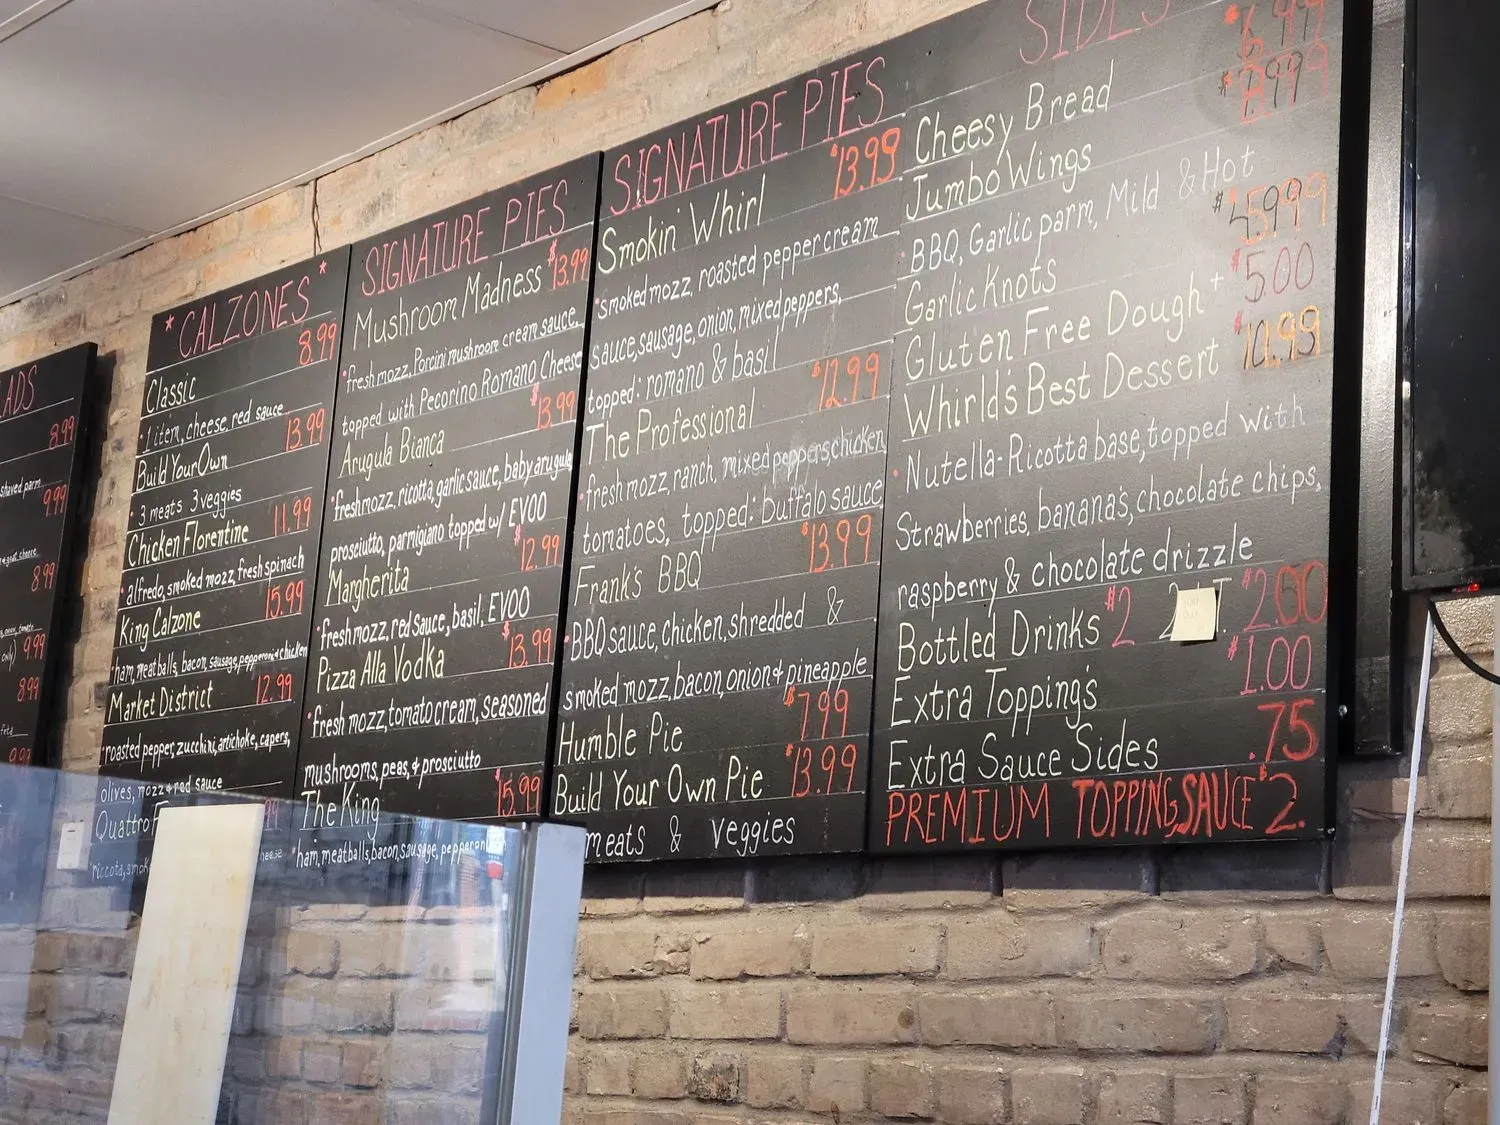 ADS
8.99
shaved parm
9.99
8.99
9.99
8.99
9.99
* CALZONES *
Classic 8.99
• 1 item, cheese, red sauce
Build Your Own 13.99
• 3 meats 3 veggies
Chicken Florentine 11.99
• alfredo, smoked mozz, fresh spinach
King Calzone 15.99
• ham, meatballs, bacon, sausage, pepperoni & chicken
Market District 12.99
• roasted pepper, zucchini, artichoke, capers,
olives, mozz & red sauce
Quattro F
SIGNATURE PIES
Mushroom Madness $13.99
• fresh mozz, Porcini mushroom cream sauce,
topped with Pecorino Romano Cheese
Arugula Bianca $13.99
• fresh mozz, ricotta, garlic sauce, baby arugula
prosciutto, parmigiano topped w/ EVOO
Margherita $12.99
• fresh mozz, red sauce, basil, EVOO
Pizza Alla Vodka $13.99
• fresh mozz, tomato cream, seasoned
mushrooms, peas, & prosciutto
The King $15.99
• ham, meatballs, bacon, sausage, pepperoni
SIGNATURE PIES
Smokin' Whirl $13.99
• smoked mozz, roasted pepper cream
sauce, sausage, onion, mixed peppers,
topped: romano & basil
The Professional $12.99
• fresh mozz, ranch, mixed peppers, chicken,
tomatoes, topped: buffalo sauce
Frank's BBQ $13.99
• BBQ sauce, chicken, shredded &
smoked mozz, bacon, onion & pineapple
Humble Pie $7.99
Build Your Own Pie $13.99
meats & veggies
SIDES
Cheesy Bread $6.99
Jumbo Wings
• BBQ, Garlic parm, Mild & Hot
Garlic Knots
Gluten Free Dough+ $5.00
Whirld's Best Dessert $10.99
• Nutella-Ricotta base, topped with
Strawberries, bananas, chocolate chips,
raspberry & chocolate drizzle
Bottled Drinks $2 2 T. $2.00
Extra Topping's $1.00
Extra Sauce Sides .75
PREMIUM TOPPING, SAUCE $2.